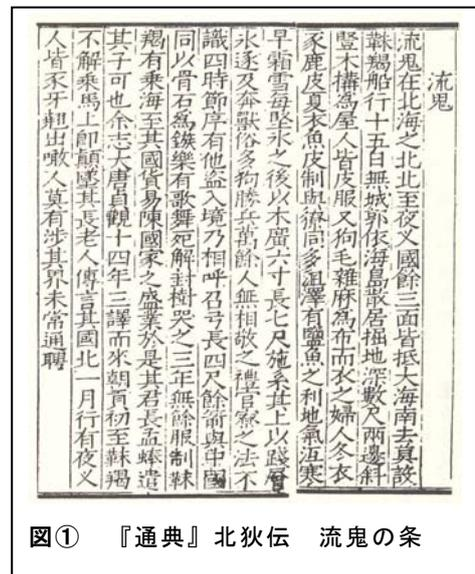 流鬼
流鬼在北海之北北至夜叉國餘三面皆抵大海南去莫設
靺鞨船行十五日無城郭依海島散居掘地深數尺兩邊斜
豎木構為屋人皆皮服又狗毛雜麻為布而衣之婦人冬衣
豕鹿皮夏衣魚皮制與獠同多沮澤有鹽魚之利地氣沍寒
早霜雪每堅氷之後以木廣六寸長七尺施系其上以踐層
氷逐及奔獸俗多狗勝兵萬餘人無相敬之禮官寮之法不
識四時節序有他盗入境乃相呼召弓長四尺餘箭與中國
同以骨石為鏃樂有歌舞死解封樹哭之三年無餘服制靺
鞨有乗海至其國貨易陳國家之盛業於是其君長孟蜯遣
其子可也余志大唐貞觀十四年三譯而來朝貢初至靺鞨
不解乗馬上即顛墜其長老人傳言其國北一月行有夜叉
人皆豕牙翹出噉人莫有涉其界未常通聘
図① 『通典』北狄伝 流鬼の条